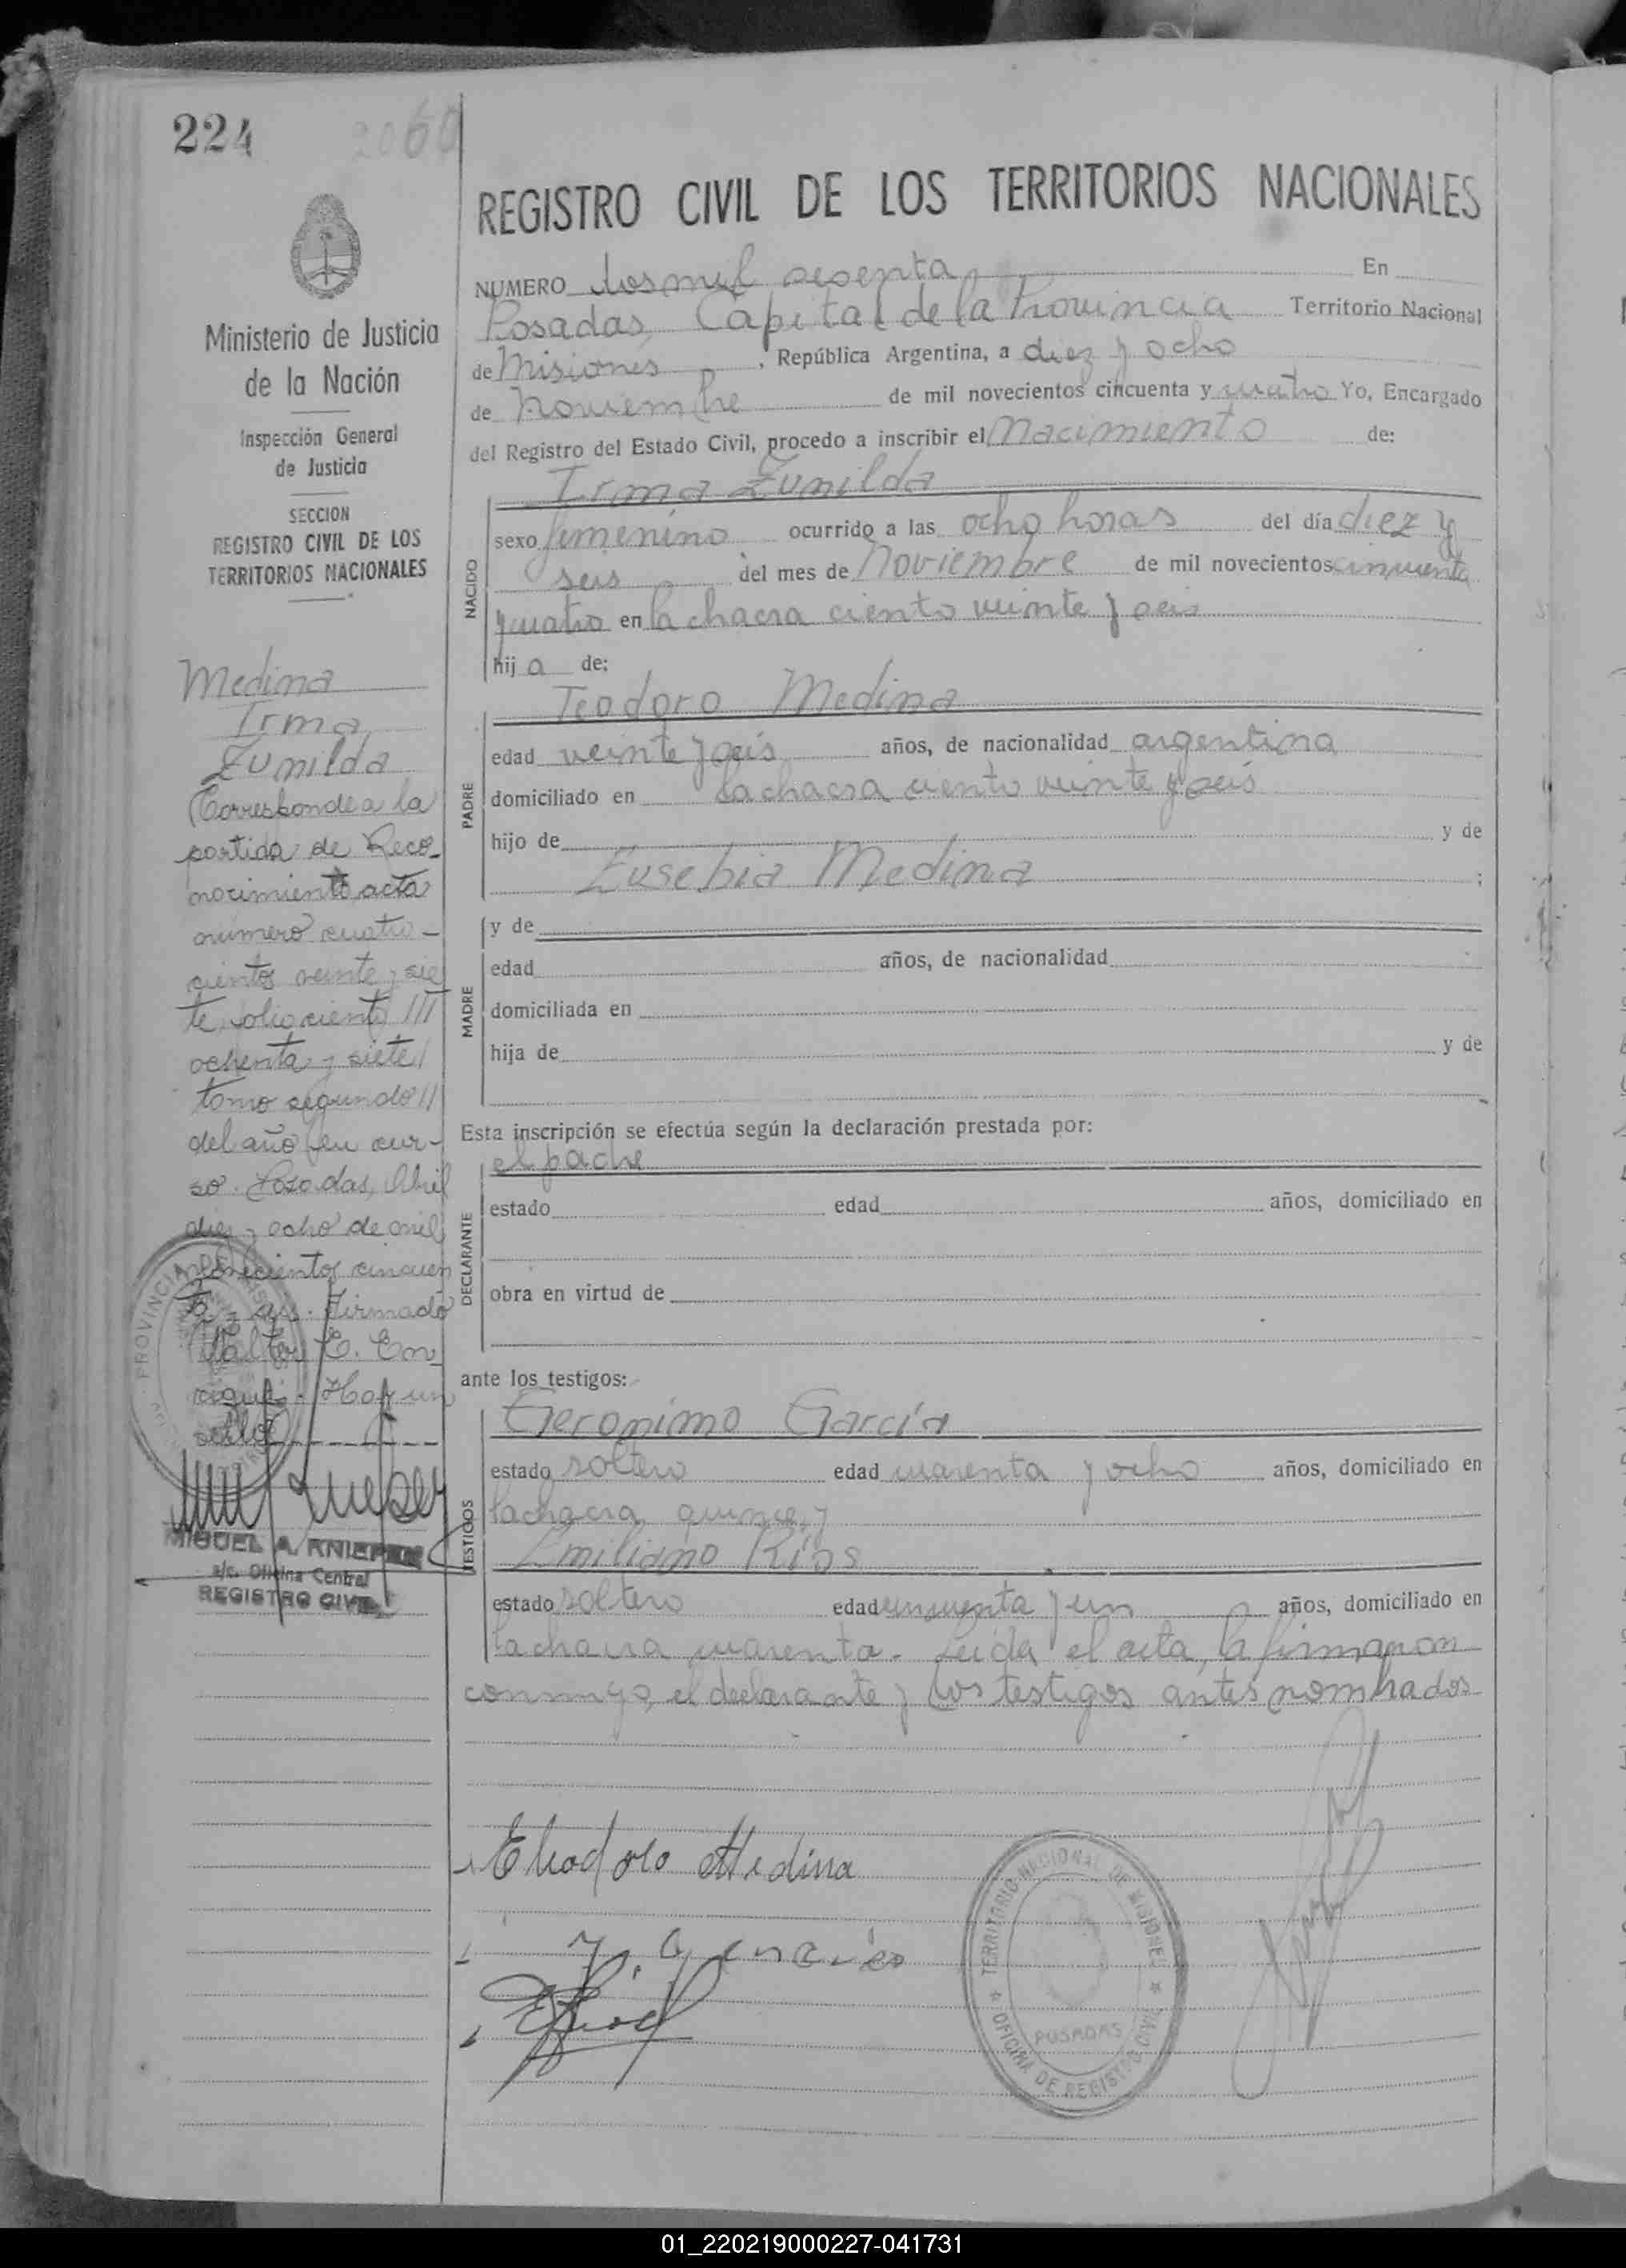 224 2060
REGISTRO CIVIL DE LOS TERRITORIOS NACIONALES
Ministerio de Justicia
de la Nación
Inspección General
de Justicia
SECCION
REGISTRO CIVIL DE LOS
TERRITORIOS NACIONALES
Medina
Irma
Zunilda
Corresponde a la
partida de Reco-
nocimiento acta
número cuatro-
cientos veinte y sie
te, folio ciento ///
ochenta y siete/
tomo segundo //
del año en cur-
so. Posadas, Abril
diez y ocho de mil
novecientos cincuen
ta y Firmado
Walter E.
Hay un
sello
MIGUEL A. KNIEPER
a/c. Oficina Central
REGISTRO CIVIL
NUMERO dos mil sesenta En
Posadas, Capital de la Provincia Territorio Nacional
de Misiones, República Argentina, a diez y ocho
de noviembre de mil novecientos cincuenta y cuatro Yo, Encargado
del Registro del Estado Civil, procedo a inscribir el Nacimiento de:
NACIDO
Irma Zunilda
sexo femenino ocurrido a las ocho horas del día diez y
seis del mes de Noviembre de mil novecientos cincuenta
y cuatro en la chacra ciento veinte y seis
hija de:
PADRE
Teodoro Medina
edad veinte y seis años, de nacionalidad argentina
domiciliado en la chacra ciento veinte y seis
hijo de y de
Eusebia Medina ;
MADRE
y de
edad años, de nacionalidad
domiciliada en
hija de y de
Esta inscripción se efectúa según la declaración prestada por:
DECLARANTE
el padre
estado edad años, domiciliado en
obra en virtud de
ante los testigos:
TESTIGOS
Geronimo García
estado soltero edad cuarenta y ocho años, domiciliado en
la chacra quince, y
Emiliano Ríos
estado soltero edad cincuenta y un años, domiciliado en
la chacra cuarenta. Leida el acta, la firmaron
conmigo, el declarante y los testigos antes nombrados
Eleodoro Medina
TERRITORIO NACIONAL DE MISIONES
POSADAS
OFICINA DE REGISTRO CIVIL
01_220219000227-041731